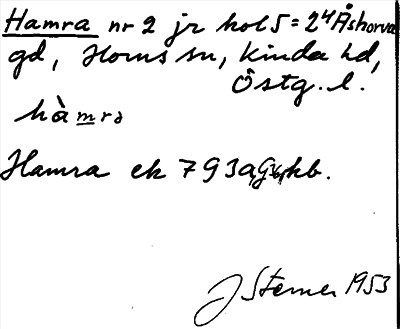 Hamra nr 2 jr kol 5 = 24 Åshorva
gd, Horns sn, Kinda hd,
Östg. l.
hàmra
Hamra ek 7 G 3a, kb.
J Sterner 1953